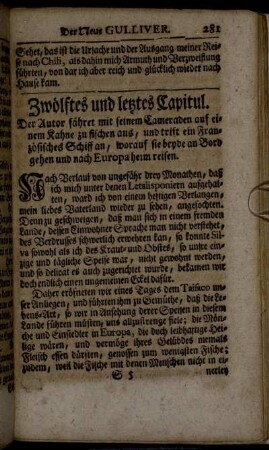 Der Neue GULLIVER. 281
Sehet, das ist die Ursache und der Ausgang meiner Rei-
se nach Chili, als dahin mich Armuth und Verzweiflung
führten, von dar ich aber reich und glücklich wieder nach
Hause kam.
Zwölftes und letztes Capitul.
Der Autor fähret mit seinem Cameraden auf ei-
nem Kahne zu fischen aus, und trift ein Fran-
zösisches Schiff an, worauf sie beyde an Bord
gehen und nach Europa heim reisen.
Nach Verlauf von ungefähr drey Monathen, daß
ich mich unter denen Letalisponiern aufgehal-
ten, ward ich von einem heftigen Verlangen,
mein liebes Vaterland wieder zu sehen, angefochten.
Denn zu geschweigen, daß man sich in einem fremden
Lande, dessen Einwohner Sprache man nicht verstehet,
des Verdrusses schwerlich erwehren kan, so konnte Sil-
va sowohl als ich des Kraut- und Obstes, so unsre einzi-
ge und tägliche Speise war, nicht gewohnt werden,
und so delicat es auch zugerichtet wurde, bekamen wir
doch endlich einen ungemeinen Eckel dafür.
Daher eröfneten wir eines Tages dem Taifaco un-
ser Anliegen, und führten ihm zu Gemüthe, daß die Le-
bens-Art, so wir in Ansehung derer Speisen in diesem
Lande führen müsten, uns allzustrenge fiele; die Mön-
che und Einsiedler in Europa, die doch leibhaftige Hei-
lige wären, und vermöge ihres Gelübdes niemals
Fleisch essen dürften, genossen zum wenigsten Fische;
zudem, weil die Fische mit denen Menschen nicht in ei-
S 5 nerley